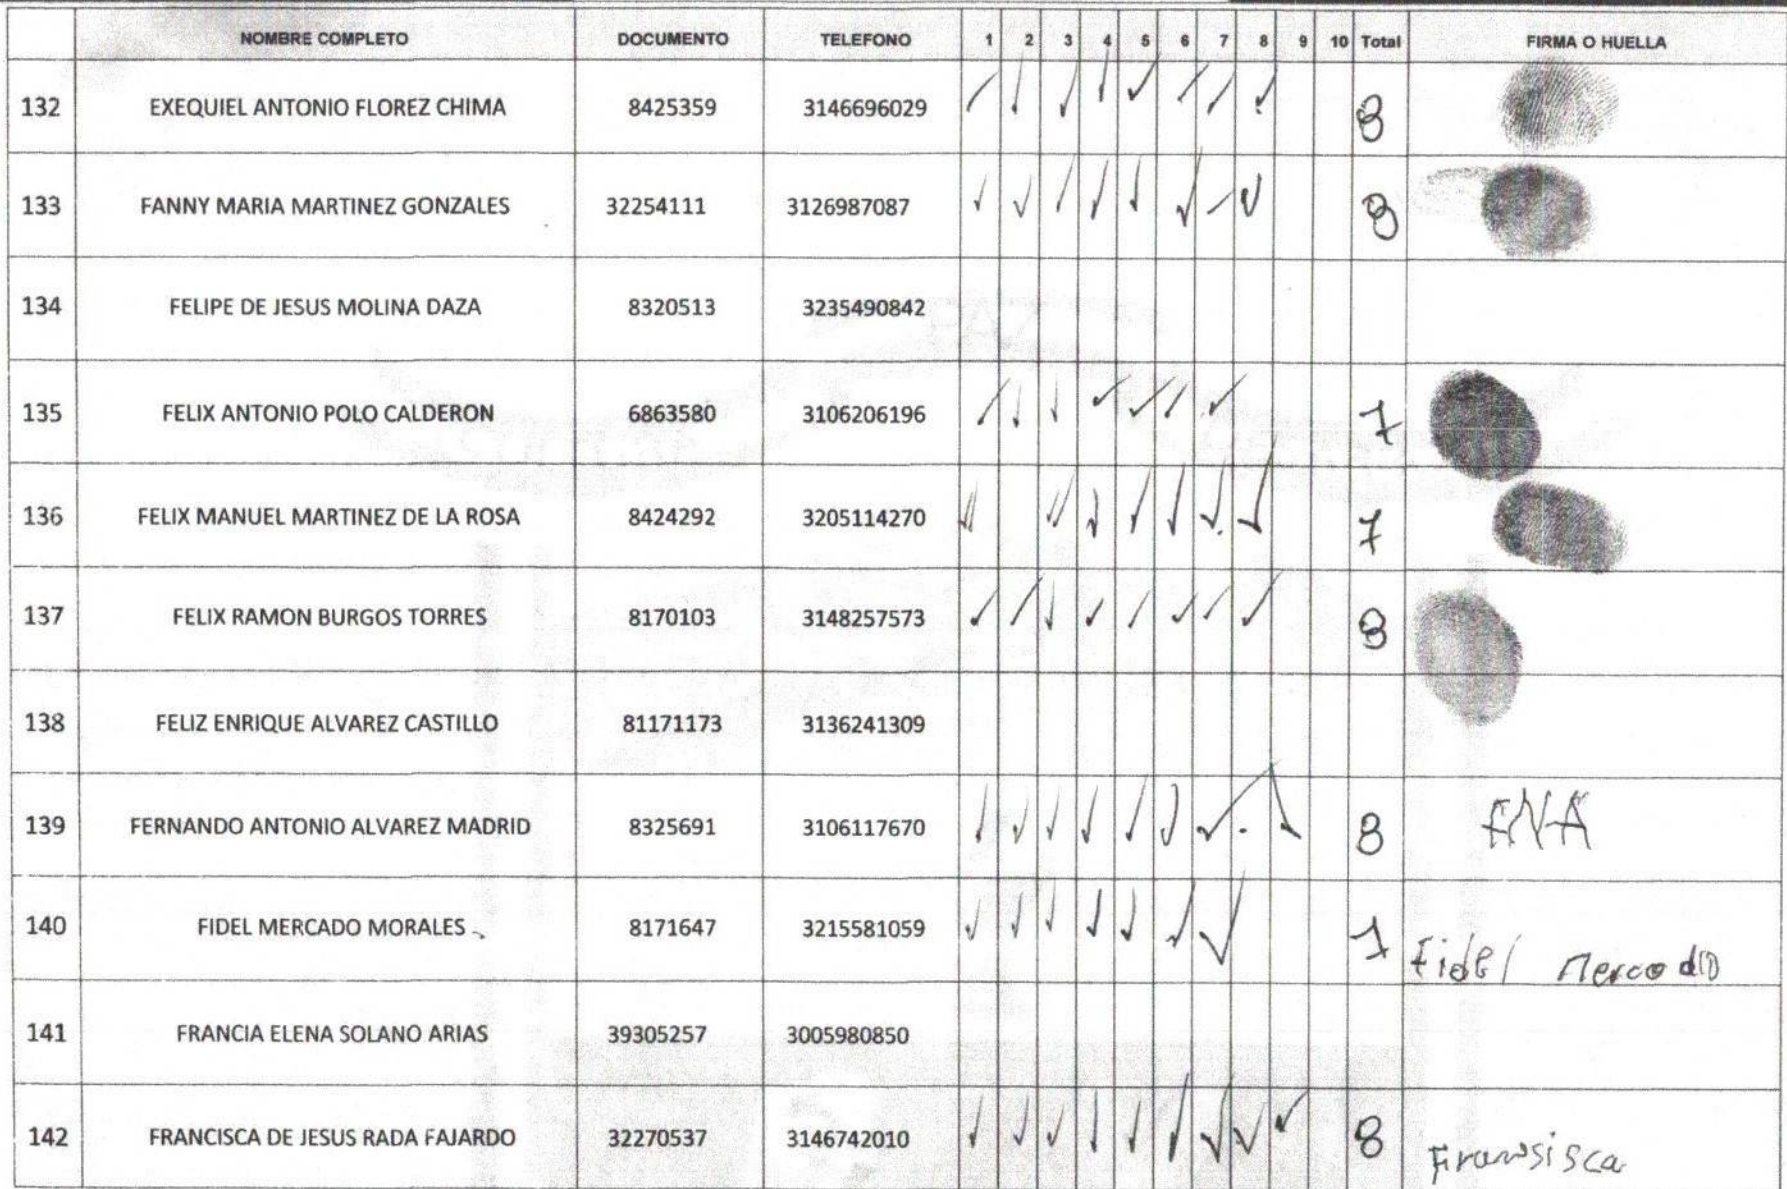 NOMBRE COMPLETO DOCUMENTO TELEFONO 1 2 3 4 5 6 7 8 9 10 Total FIRMA O HUELLA
132 EXEQUIEL ANTONIO FLOREZ CHIMA 8425359 3146696029 ✓ ✓ ✓ ✓ ✓ ✓ ✓ ✓ 8
133 FANNY MARIA MARTINEZ GONZALES 32254111 3126987087 ✓ ✓ ✓ ✓ ✓ ✓ ✓ ✓ 8
134 FELIPE DE JESUS MOLINA DAZA 8320513 3235490842
135 FELIX ANTONIO POLO CALDERON 6863580 3106206196 ✓ ✓ ✓ ✓ ✓ ✓ ✓ 7
136 FELIX MANUEL MARTINEZ DE LA ROSA 8424292 3205114270 ✓ ✓ ✓ ✓ ✓ ✓ ✓ 7
137 FELIX RAMON BURGOS TORRES 8170103 3148257573 ✓ ✓ ✓ ✓ ✓ ✓ ✓ ✓ 8
138 FELIZ ENRIQUE ALVAREZ CASTILLO 81171173 3136241309
139 FERNANDO ANTONIO ALVAREZ MADRID 8325691 3106117670 ✓ ✓ ✓ ✓ ✓ ✓ ✓ ✓ 8
140 FIDEL MERCADO MORALES 8171647 3215581059 ✓ ✓ ✓ ✓ ✓ ✓ ✓ 7 Fidel Mercado
141 FRANCIA ELENA SOLANO ARIAS 39305257 3005980850
142 FRANCISCA DE JESUS RADA FAJARDO 32270537 3146742010 ✓ ✓ ✓ ✓ ✓ ✓ ✓ ✓ ✓ 8 Fransisca